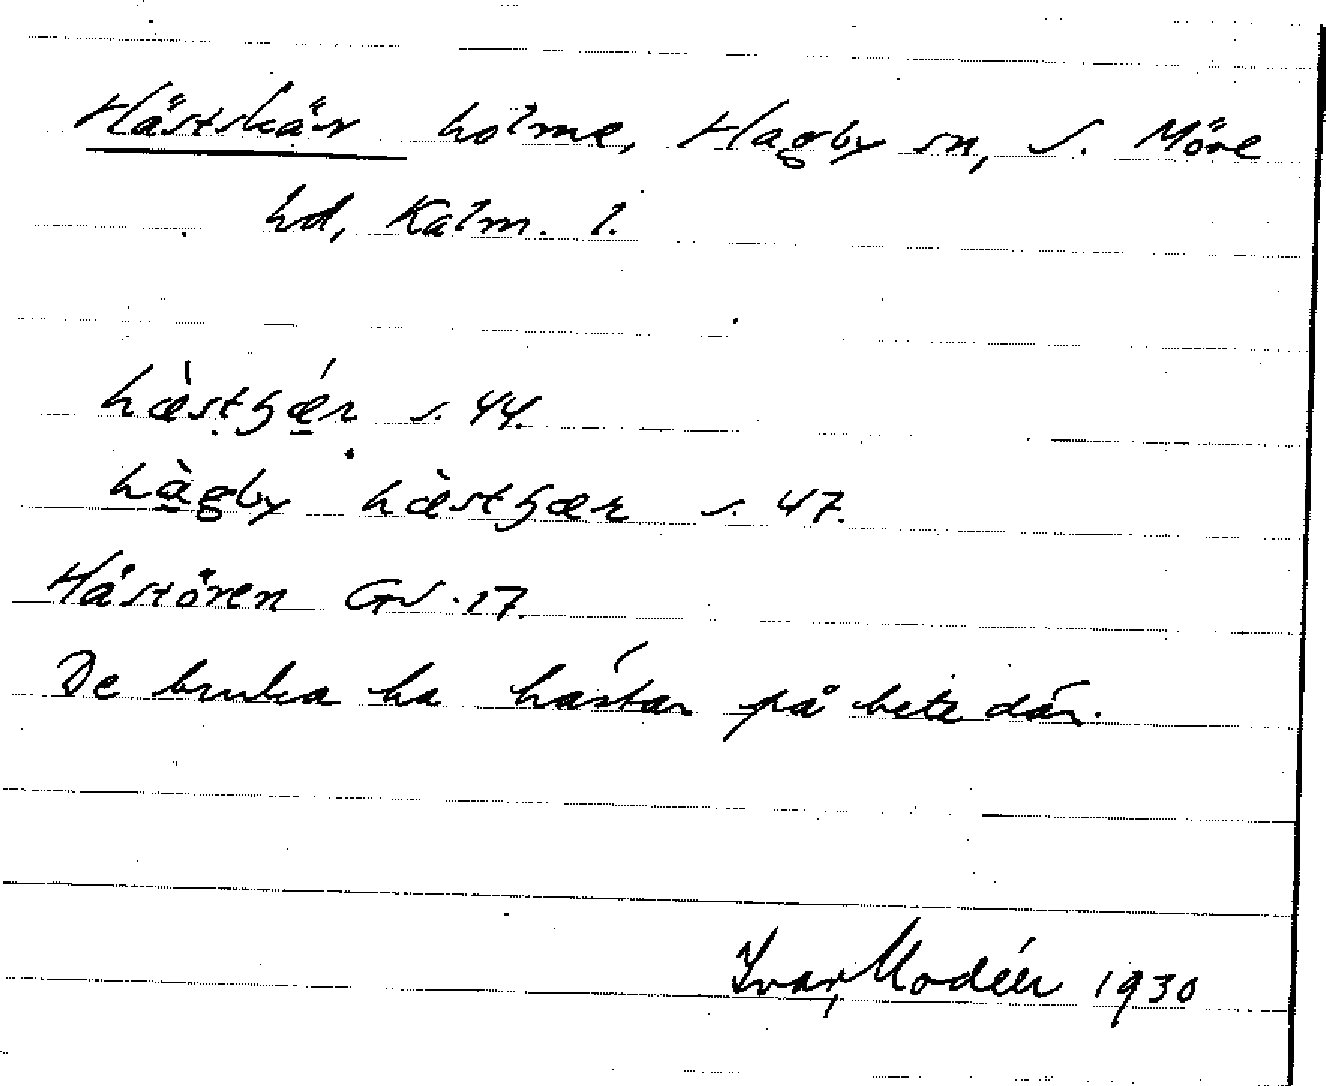 Hästskär holme, Hagby sn, S. Möre
hd, Kalm. l.
hæ̀stʒǽr s. 44.
hàgby hæ̀stʒær s. 47.
Hästören GS. 17.
De bruka ha hästar på bete där.
Ivar Modéer 1930